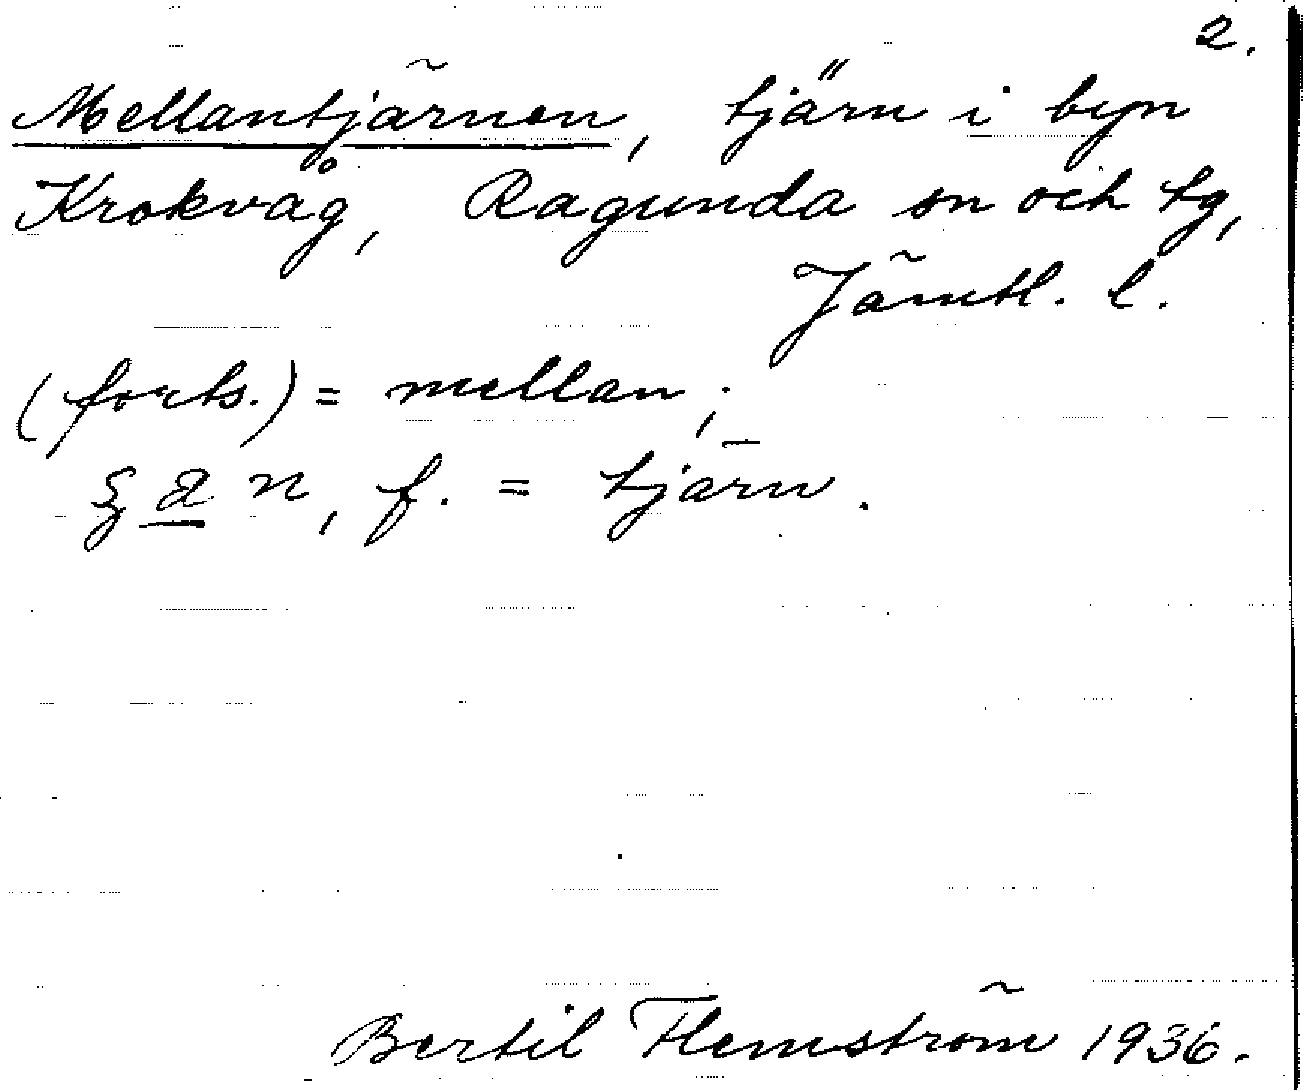 2.
Mellantjärnen, tjärn i byn
Krokvåg, Ragunda sn och tg,
Jämtl. l.
(forts.) = mellan;
n, f. = tjärn.
Bertil Flemström 1936.